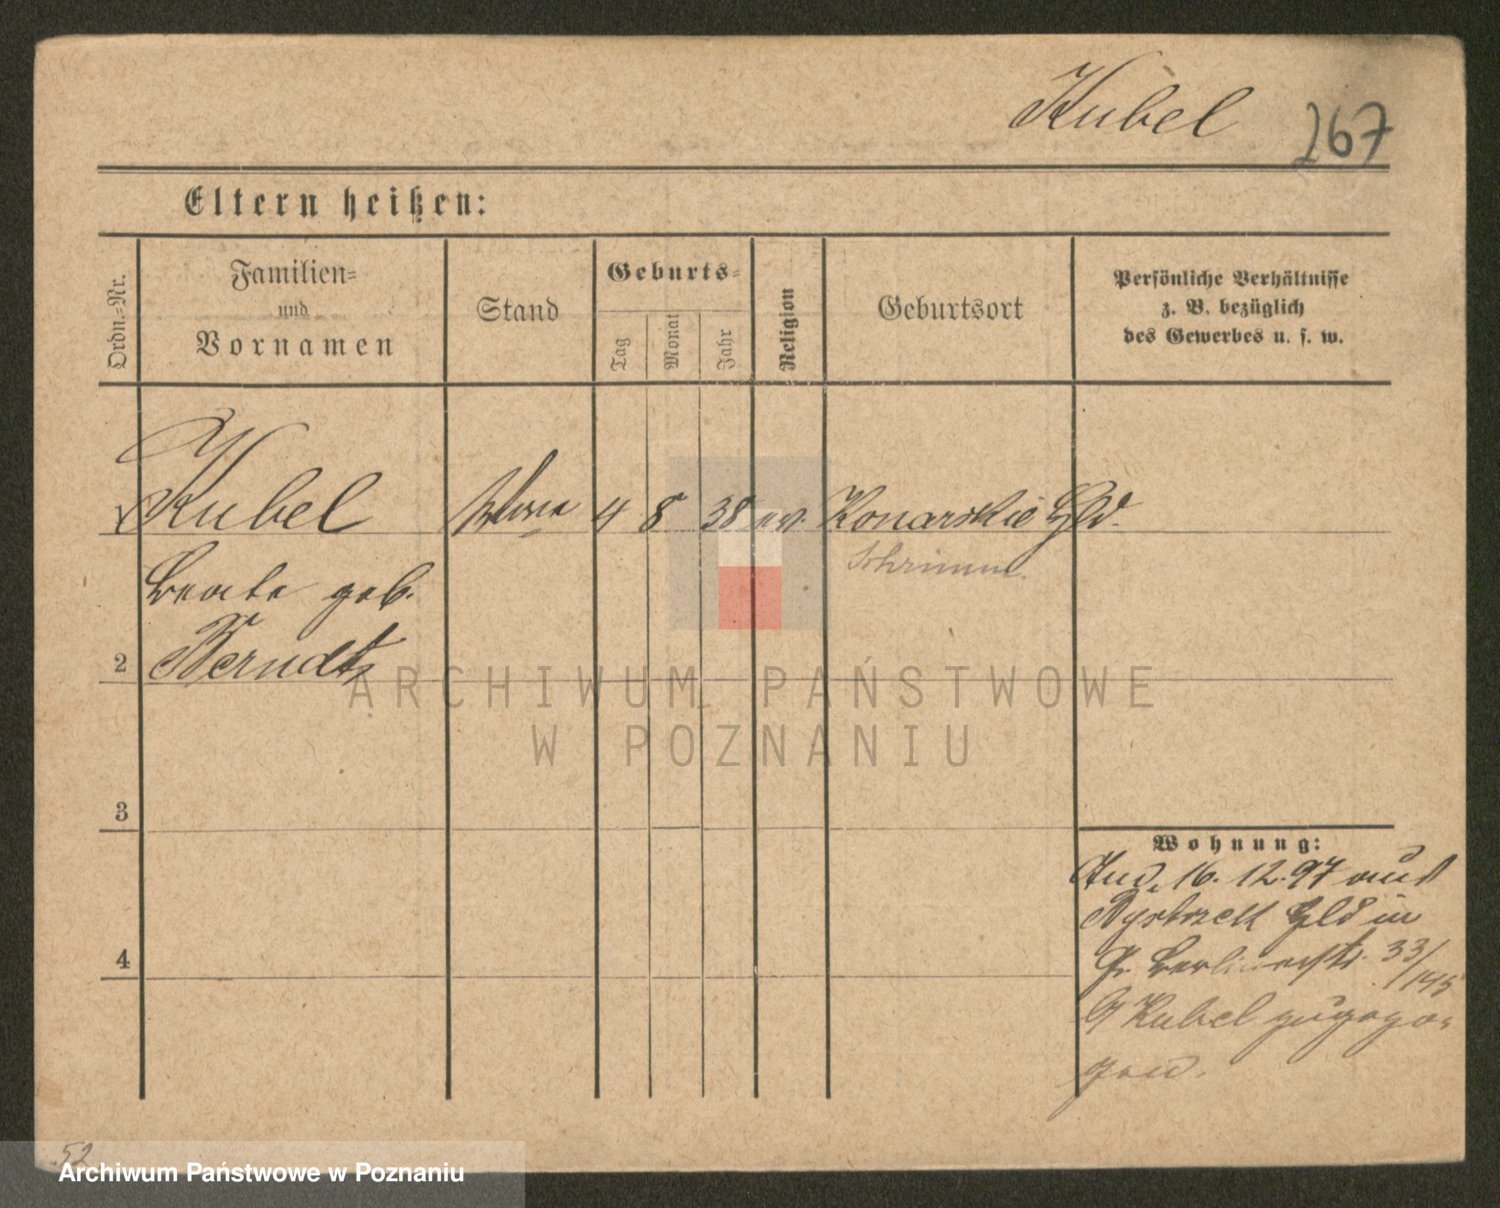 Kubel
267
Eltern heißen:
Ordn.-Nr.
Familien-
und
Vornamen
Stand
Geburts-
Tag
Monat
Jahr
Religion
Geburtsort
Persönliche Verhältnisse
z. B. bezüglich
des Gewerbes u. s. w.
Kubel 4 8 38 ev. Konarskie Gld.
Schrimm.
Beate geb.
2 Berndt
ARCHIWUM PAŃSTWOWE
W POZNANIU
3
Wohnung:
And. 16. 12. 97 aus
Gld in
4
Gr. Berlinerstr. 33/
145
Kubel zugezo-
gen.
52
Archiwum Państwowe w Poznaniu